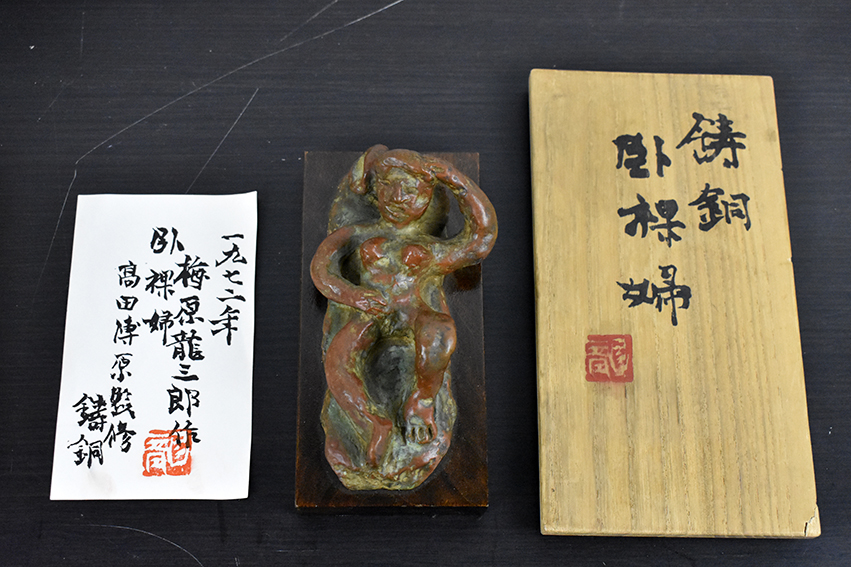 一九七二年
梅原龍三郎作
臥裸婦
高田博厚監修
鑄銅
鋳銅
臥裸婦